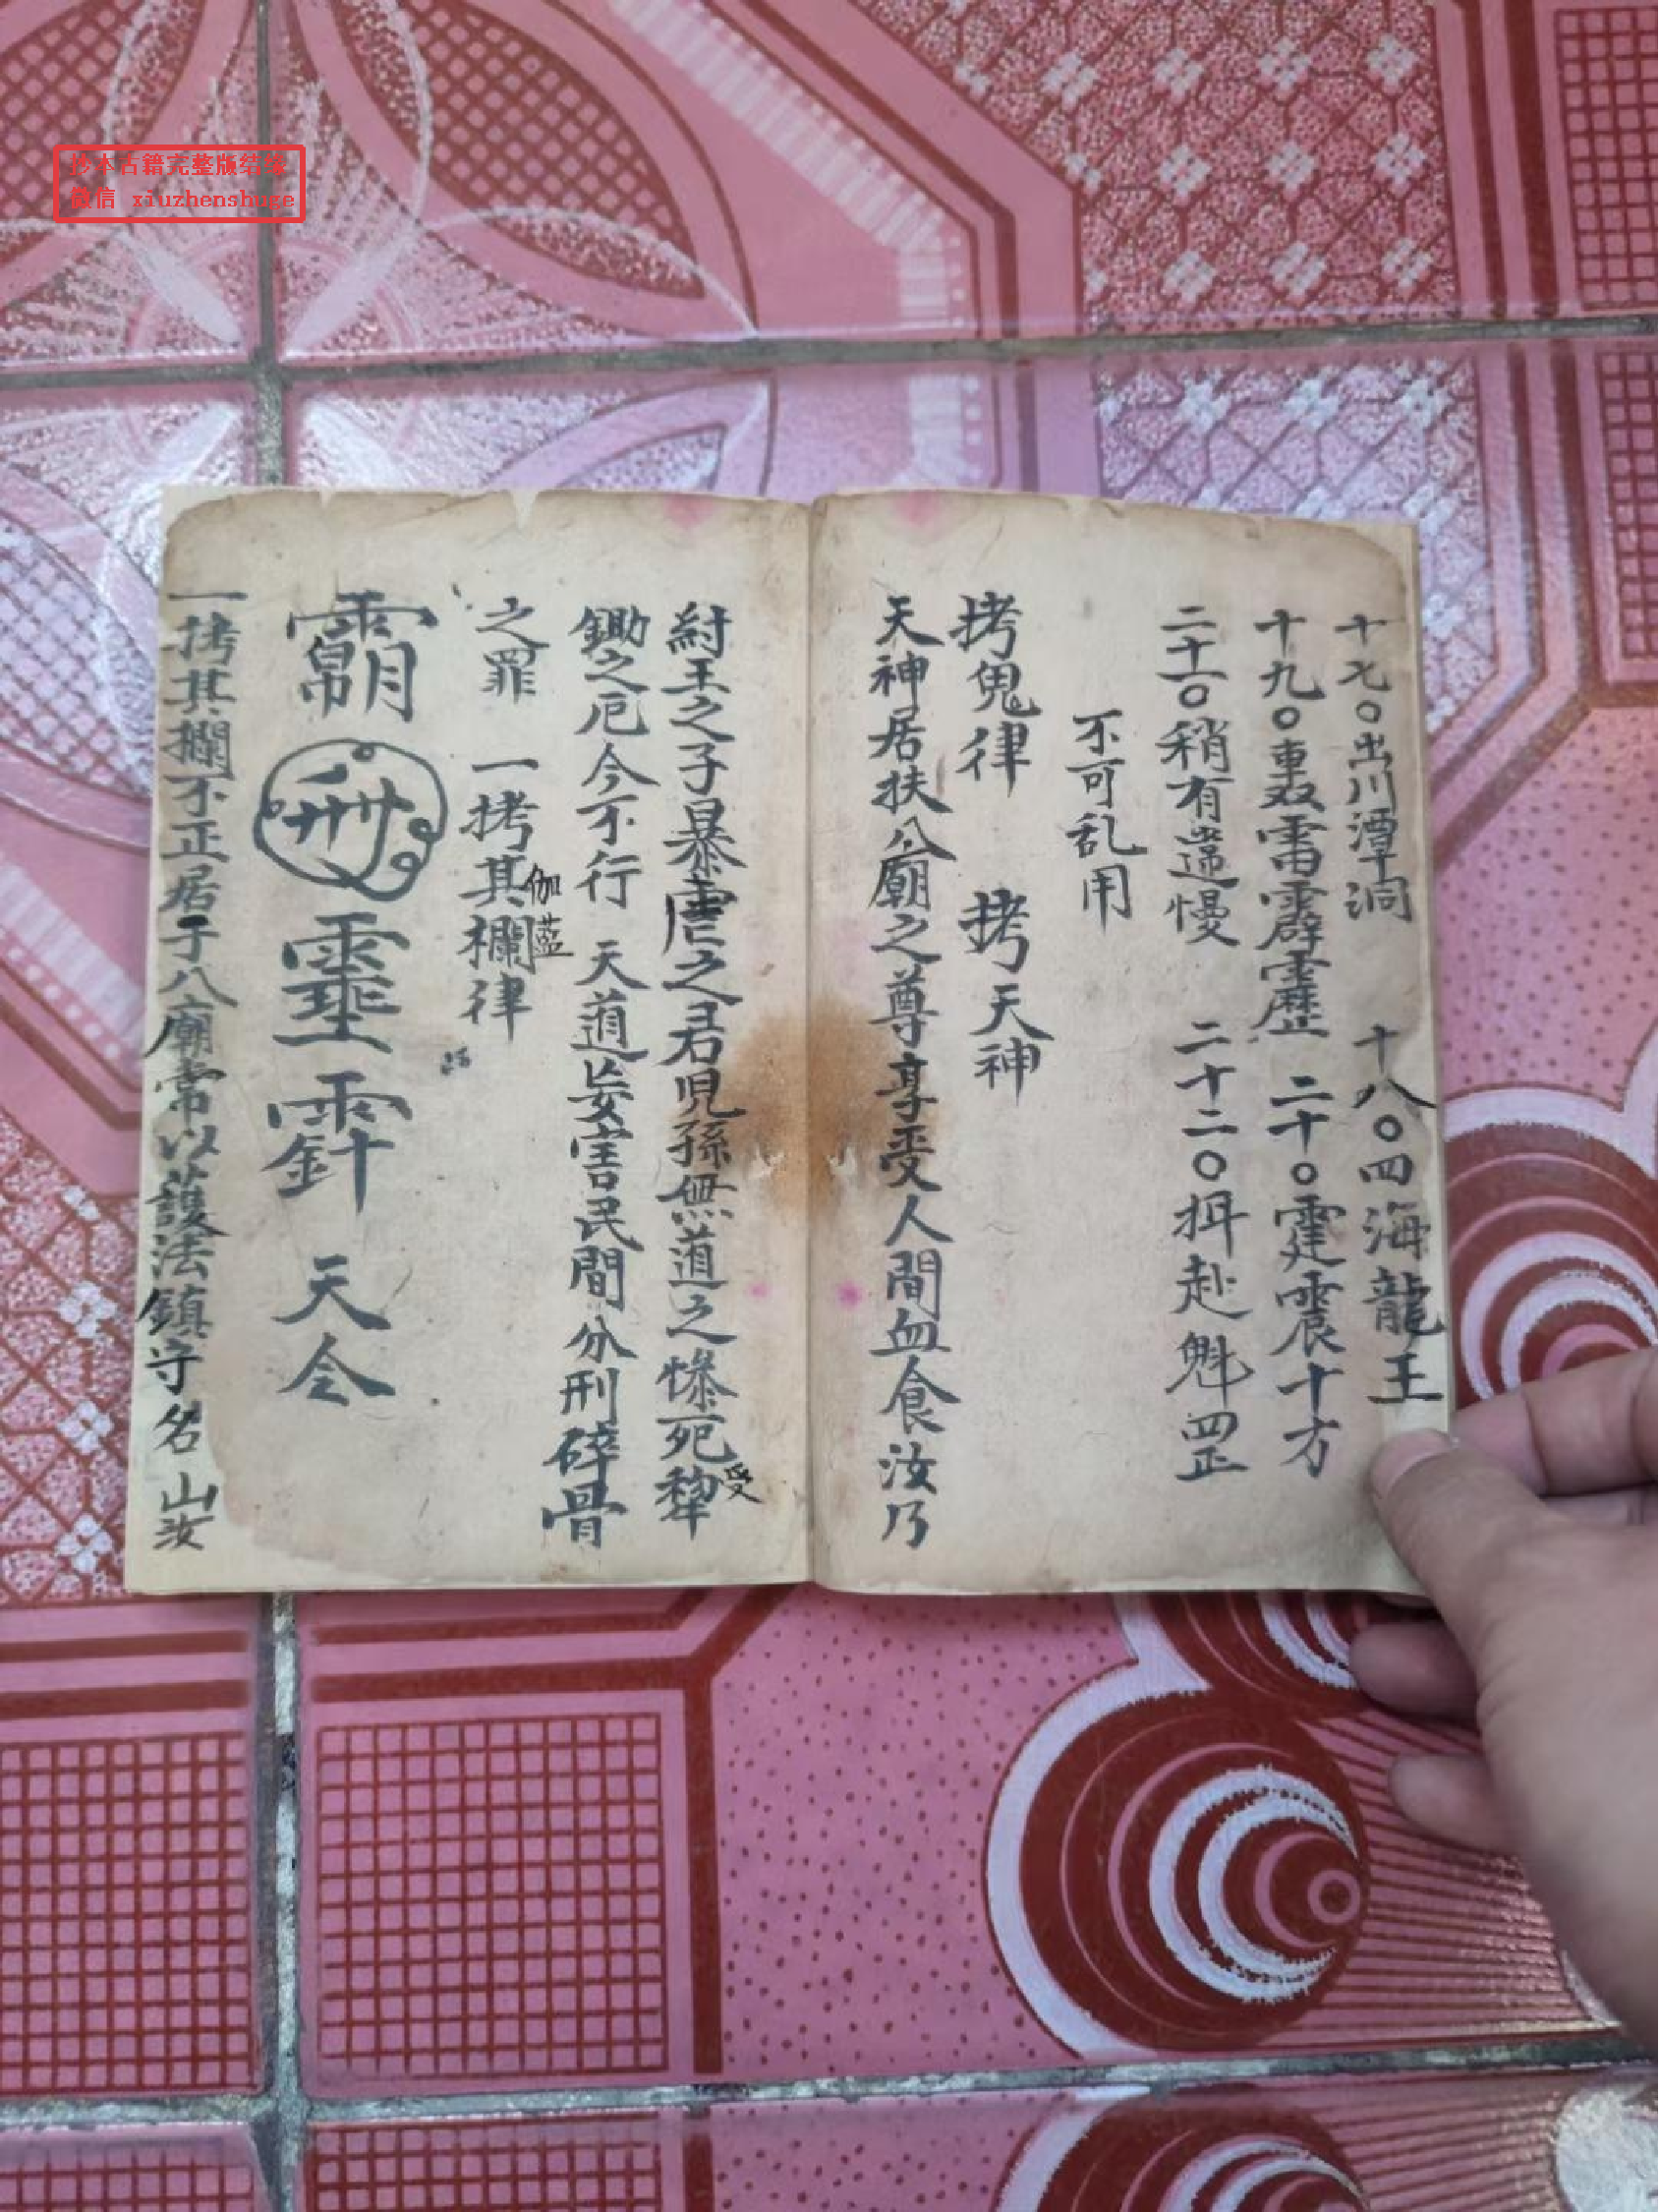 抄本古籍完整版结缘
微信 xiuzhenshuge
十七〇出川潭洞 十八〇四海龍王
十九〇重双雷霹靂 二十〇霆震十方
二十一〇稍有遲慢 二十二〇挕赴魁罡
不可乱用
拷鬼律 拷天神
天神居扶公廟之尊享受人間血食汝乃
紂王之子暴虐之君見孫無道之惨死犂受
鋤之厄今不行 天道妄害民間分刑碎骨
之罪 一拷其欄律
伽藍
天令
一拷其欄不正居于八廟常以護法鎮守名山汝